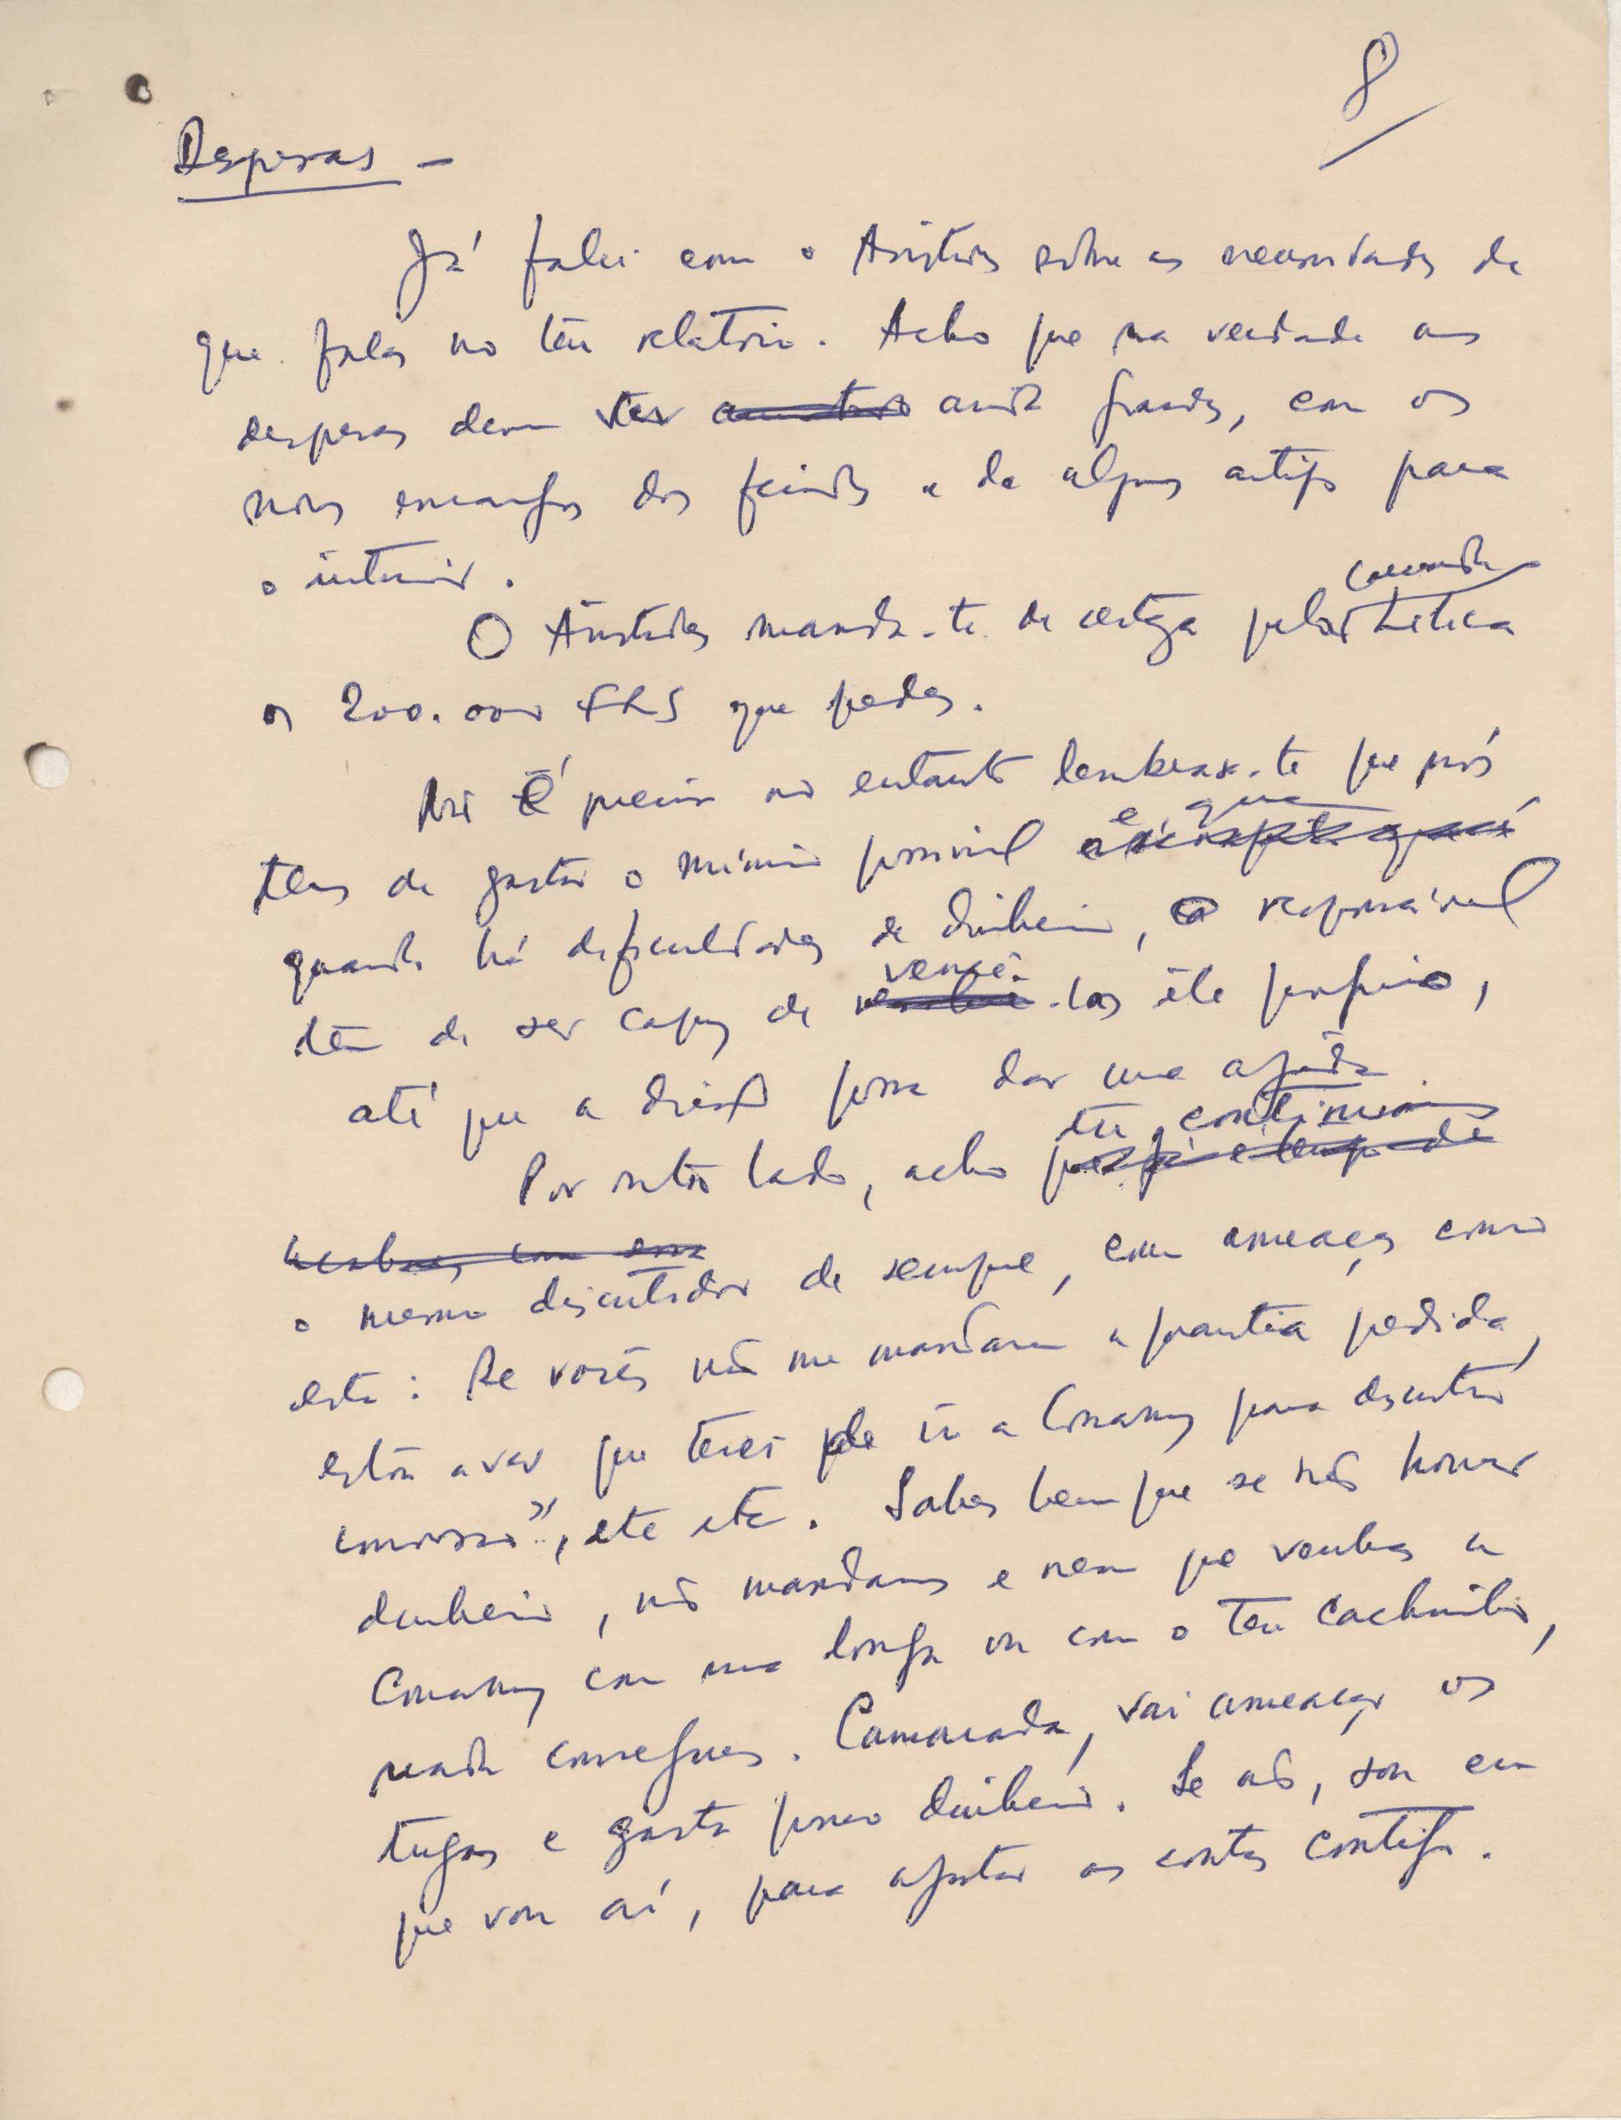 8
Despesas -
Já falei com o Aristides sôbre as necessidades de
que falas no teu relatório. Acho que na verdade as
despesas devem ter sido grandes, com os
novos encargos dos feridos e de alguns artigos para
o interior.
camarada
O Aristides manda-te de certeza pela Letícia
os 200.000 FRS que pedes.
Mas É preciso no entanto lembrar-te que nós
e que
temos de gastar o mínimo possível
quando há dificuldades de dinheiro, o responsável
vencê-
tem de ser capaz de -las êle próprio,
até que a direcção possa dar uma ajuda.
tu continuas
Por outro lado, acho que já é tempo de
acabares com essa
o mesmo discutidor de sempre, com ameaças como
esta: Se vocês não me mandarem a quantia pedida,
estou a ver que terei de ir a Conakry para discutir
convosco", etc etc. Sabes bem que se não houver
dinheiro, não mandamos e nem que venhas a
Conakry com uma longa ou com o teu cachimbo,
nada consegues. Camarada, vai ameaçar os
tugas e gasta pouco dinheiro. Se não, sou eu
que vou aí, para ajustar as contas contigo.